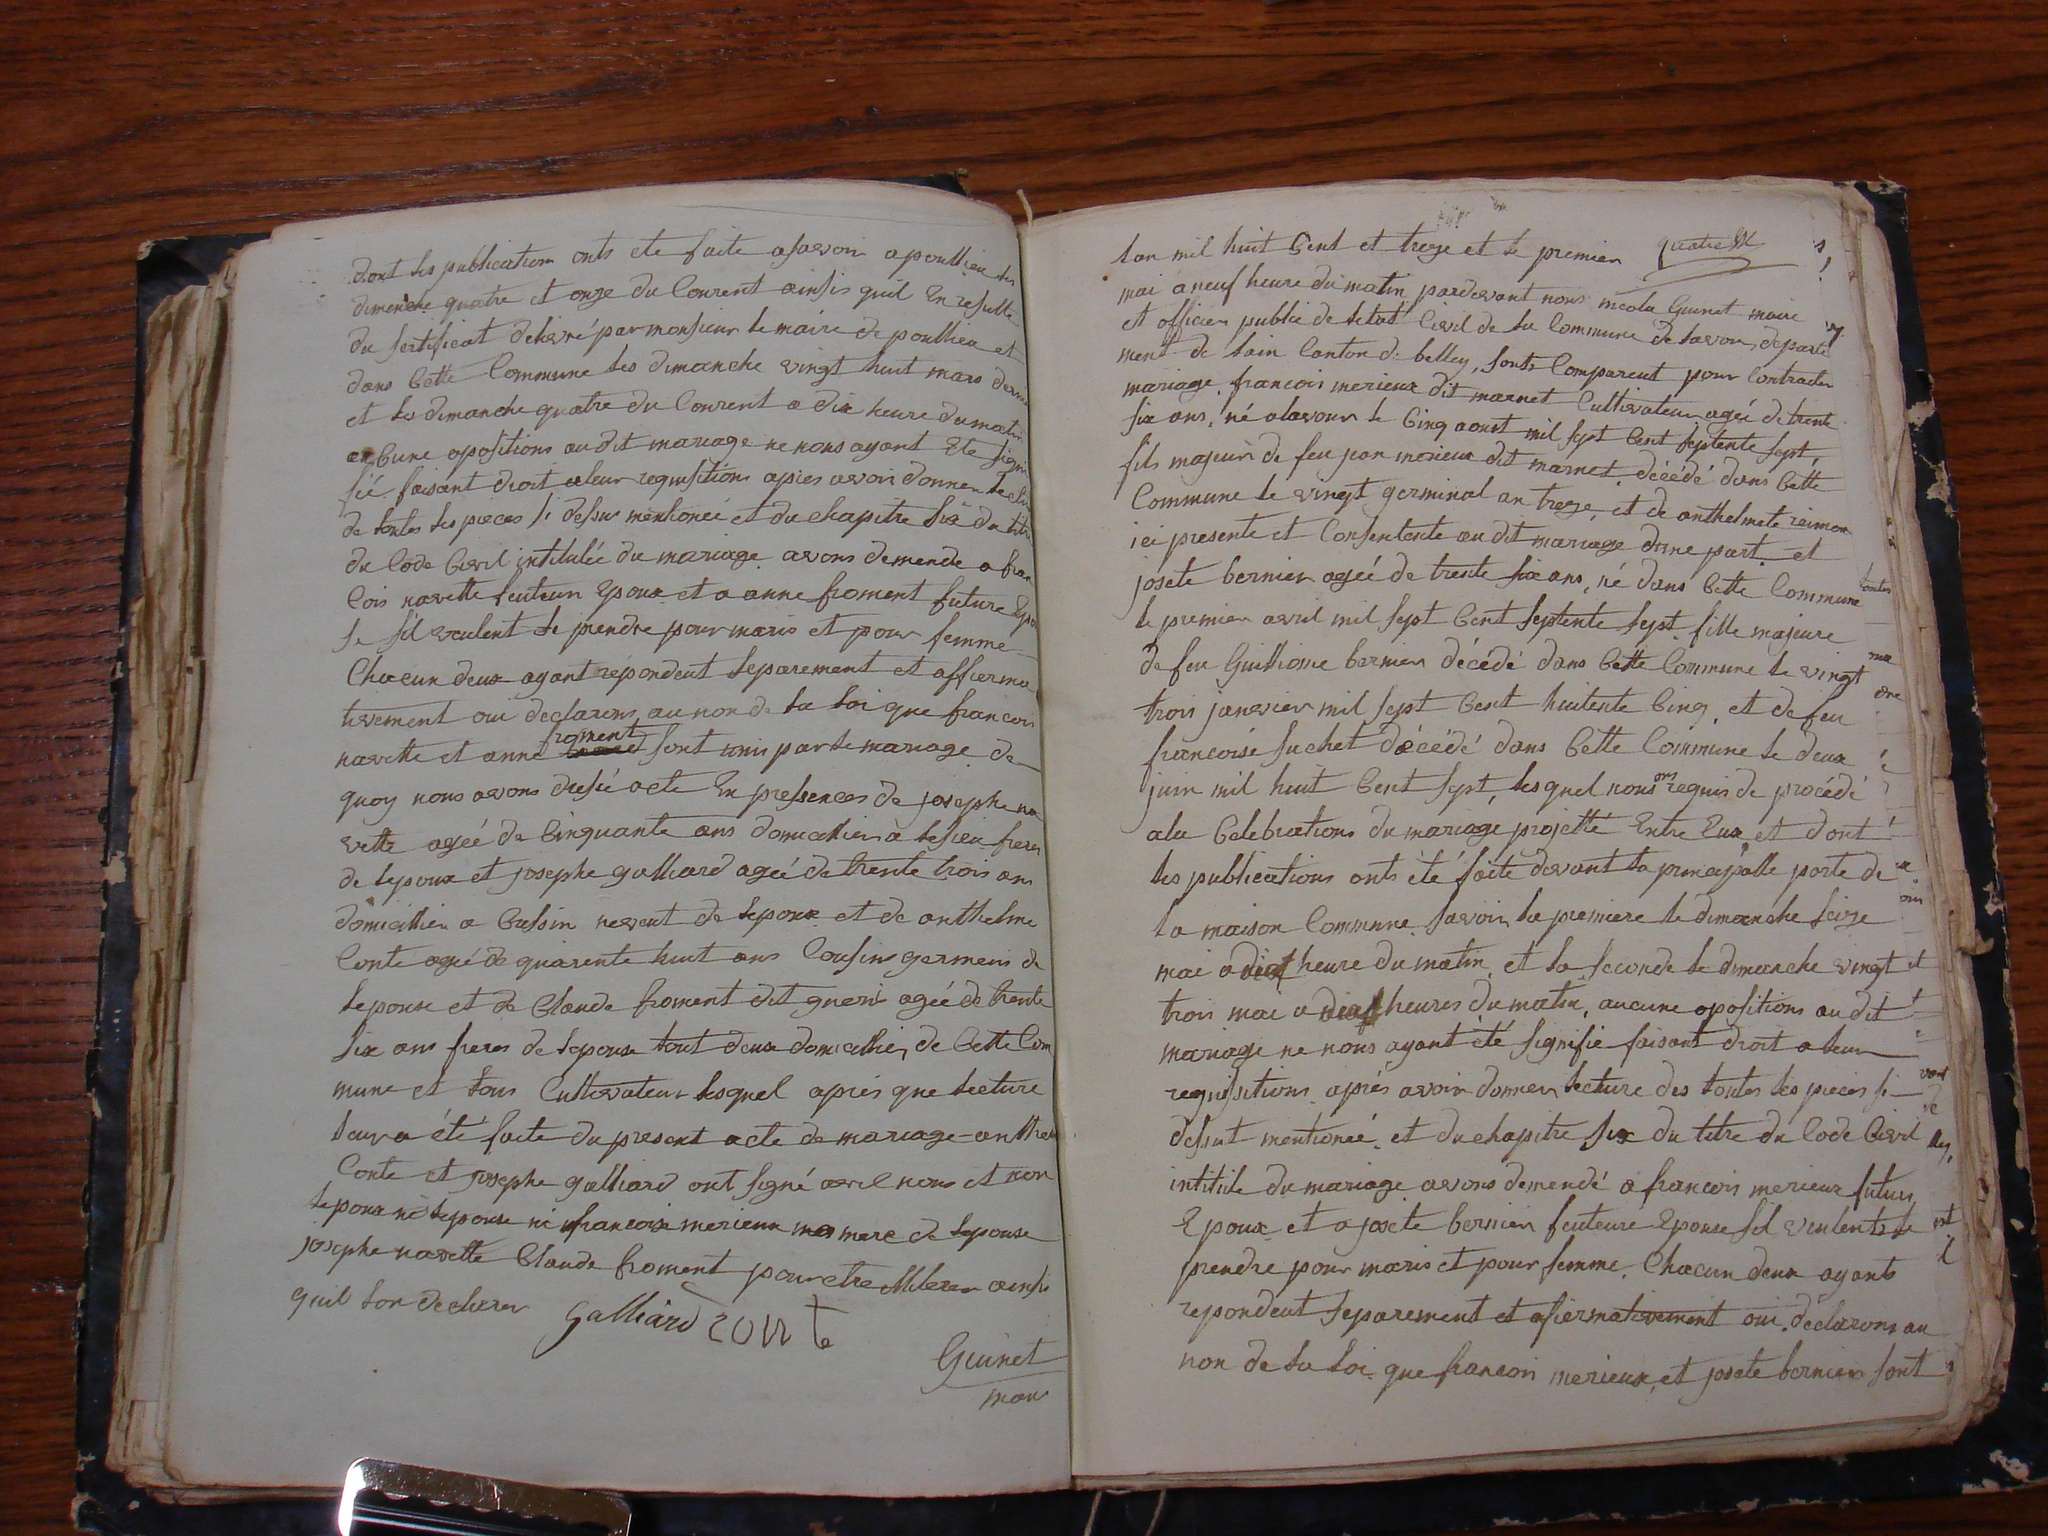 dont les publication onts ete faite asavoir a poullieu les
dimenche quatre et onze du Courent ainsis quil En resulte
du sertificat delivré par monsieur le maire de poullieu et
dans Cette Commune les dimanche vingt huit mars dernie
et les dimanche quatre du Courent a dix heure du matin
aucune opositions au dit mariage ne nous ayant Ete signi
fié faisant droit aleur requisitions apres avoir donner lecture
de toutes les pieces si dessus mentionée et du chapitre six du titre
du Code Civil intitulée du mariage avons demende a fran
Cois navette feuteur Epoux et a anne froment future Epou
se sil veulent se prendre pour maris et pour femme
Chacun deux ayant repondent separement et affierma
tivement oui declarons au non de la loi que francois
navette et anne froment sont unis par le mariage de
quoy nous avons dressé acte En pressences de josephe na
vette ageé de Cinquante ans domicellier a frere
de lepoux et josephe galliard ageé de trente trois ans
domicillier a Cussin nevent de lepoux et de anthelme
Conte ageé de quarente huit ans Cousins germeis de
lepouse et de Claude froment dit ageé de trente
six ans freres de lepouse tout deux domicellier de Cette Com
mune et tous Cultivateur lesquel apres que lecture
leur a été faite du present acte de mariage anthel
Conte et josephe galliard ont signé avec nous et non
lepoux ni lepouse ni francoise merieux mere de lepouse
josephe navette Claude froment pour etre illiterer ainsi
quil lon declarer Galliard Conte
Guinet
maire
lan mil huit Cent et treze et le premier
mai a neuf heure du matin pardevant nous nicola Guinet maire
et officier public de letat Civil de la Commune de lavour, departe
ment de lain Canton de belley, sonts Comparent pour Contracter
mariage francois merieux dit marnet Cultivateur ageé de trente
six ans, né a lavour le Cinq aoust mil sept Cent septente sept
fils majeur de feu jean merieux dit marnet décédé dans Cette
Commune le vingt germinal an treze, et de anthelmete reimon
ici presente et Consentente au dit mariage dune part et
josete bernier ageé de trente six ans, né dans Cette Commune
le premier avril mil sept Cent septente sept fille majeure
de feu Guilliome bernier décédé dans Cette Commune le vingt
trois janvier mil sept Cent huitente Cinq, et de feu
francoise suchet décédé dans Cette Commune le deux
juin mil huit Cent sept, lesquel nous ons requis de procédé
ala Celebrations du mariage projetté Entre Eux et dont
les publications onts été faite devant la principalle porte de
la maison Commune savoir la premiere le dimanche seize
mai a dix heure du matin et la seconde le dimanche vingt
trois mai a dix heures du matin, aucune opositions au dit
mariage ne nous ayant été signifié faisant droit a leur
requisitions apres avoir donner lecture des toutes les pieces si
dessut mentioneé et du chapitre six du titre du Code Civil
intitule du mariage avons demendé a francois merieux futur
Epoux et a josete bernier feuteure Epouse sil veulents se
prendre pour maris et pour femme. Chacun deux ayants
repondent separement et afiermativement oui declarons au
non de la loi que francois merieux, et josete bernier sont